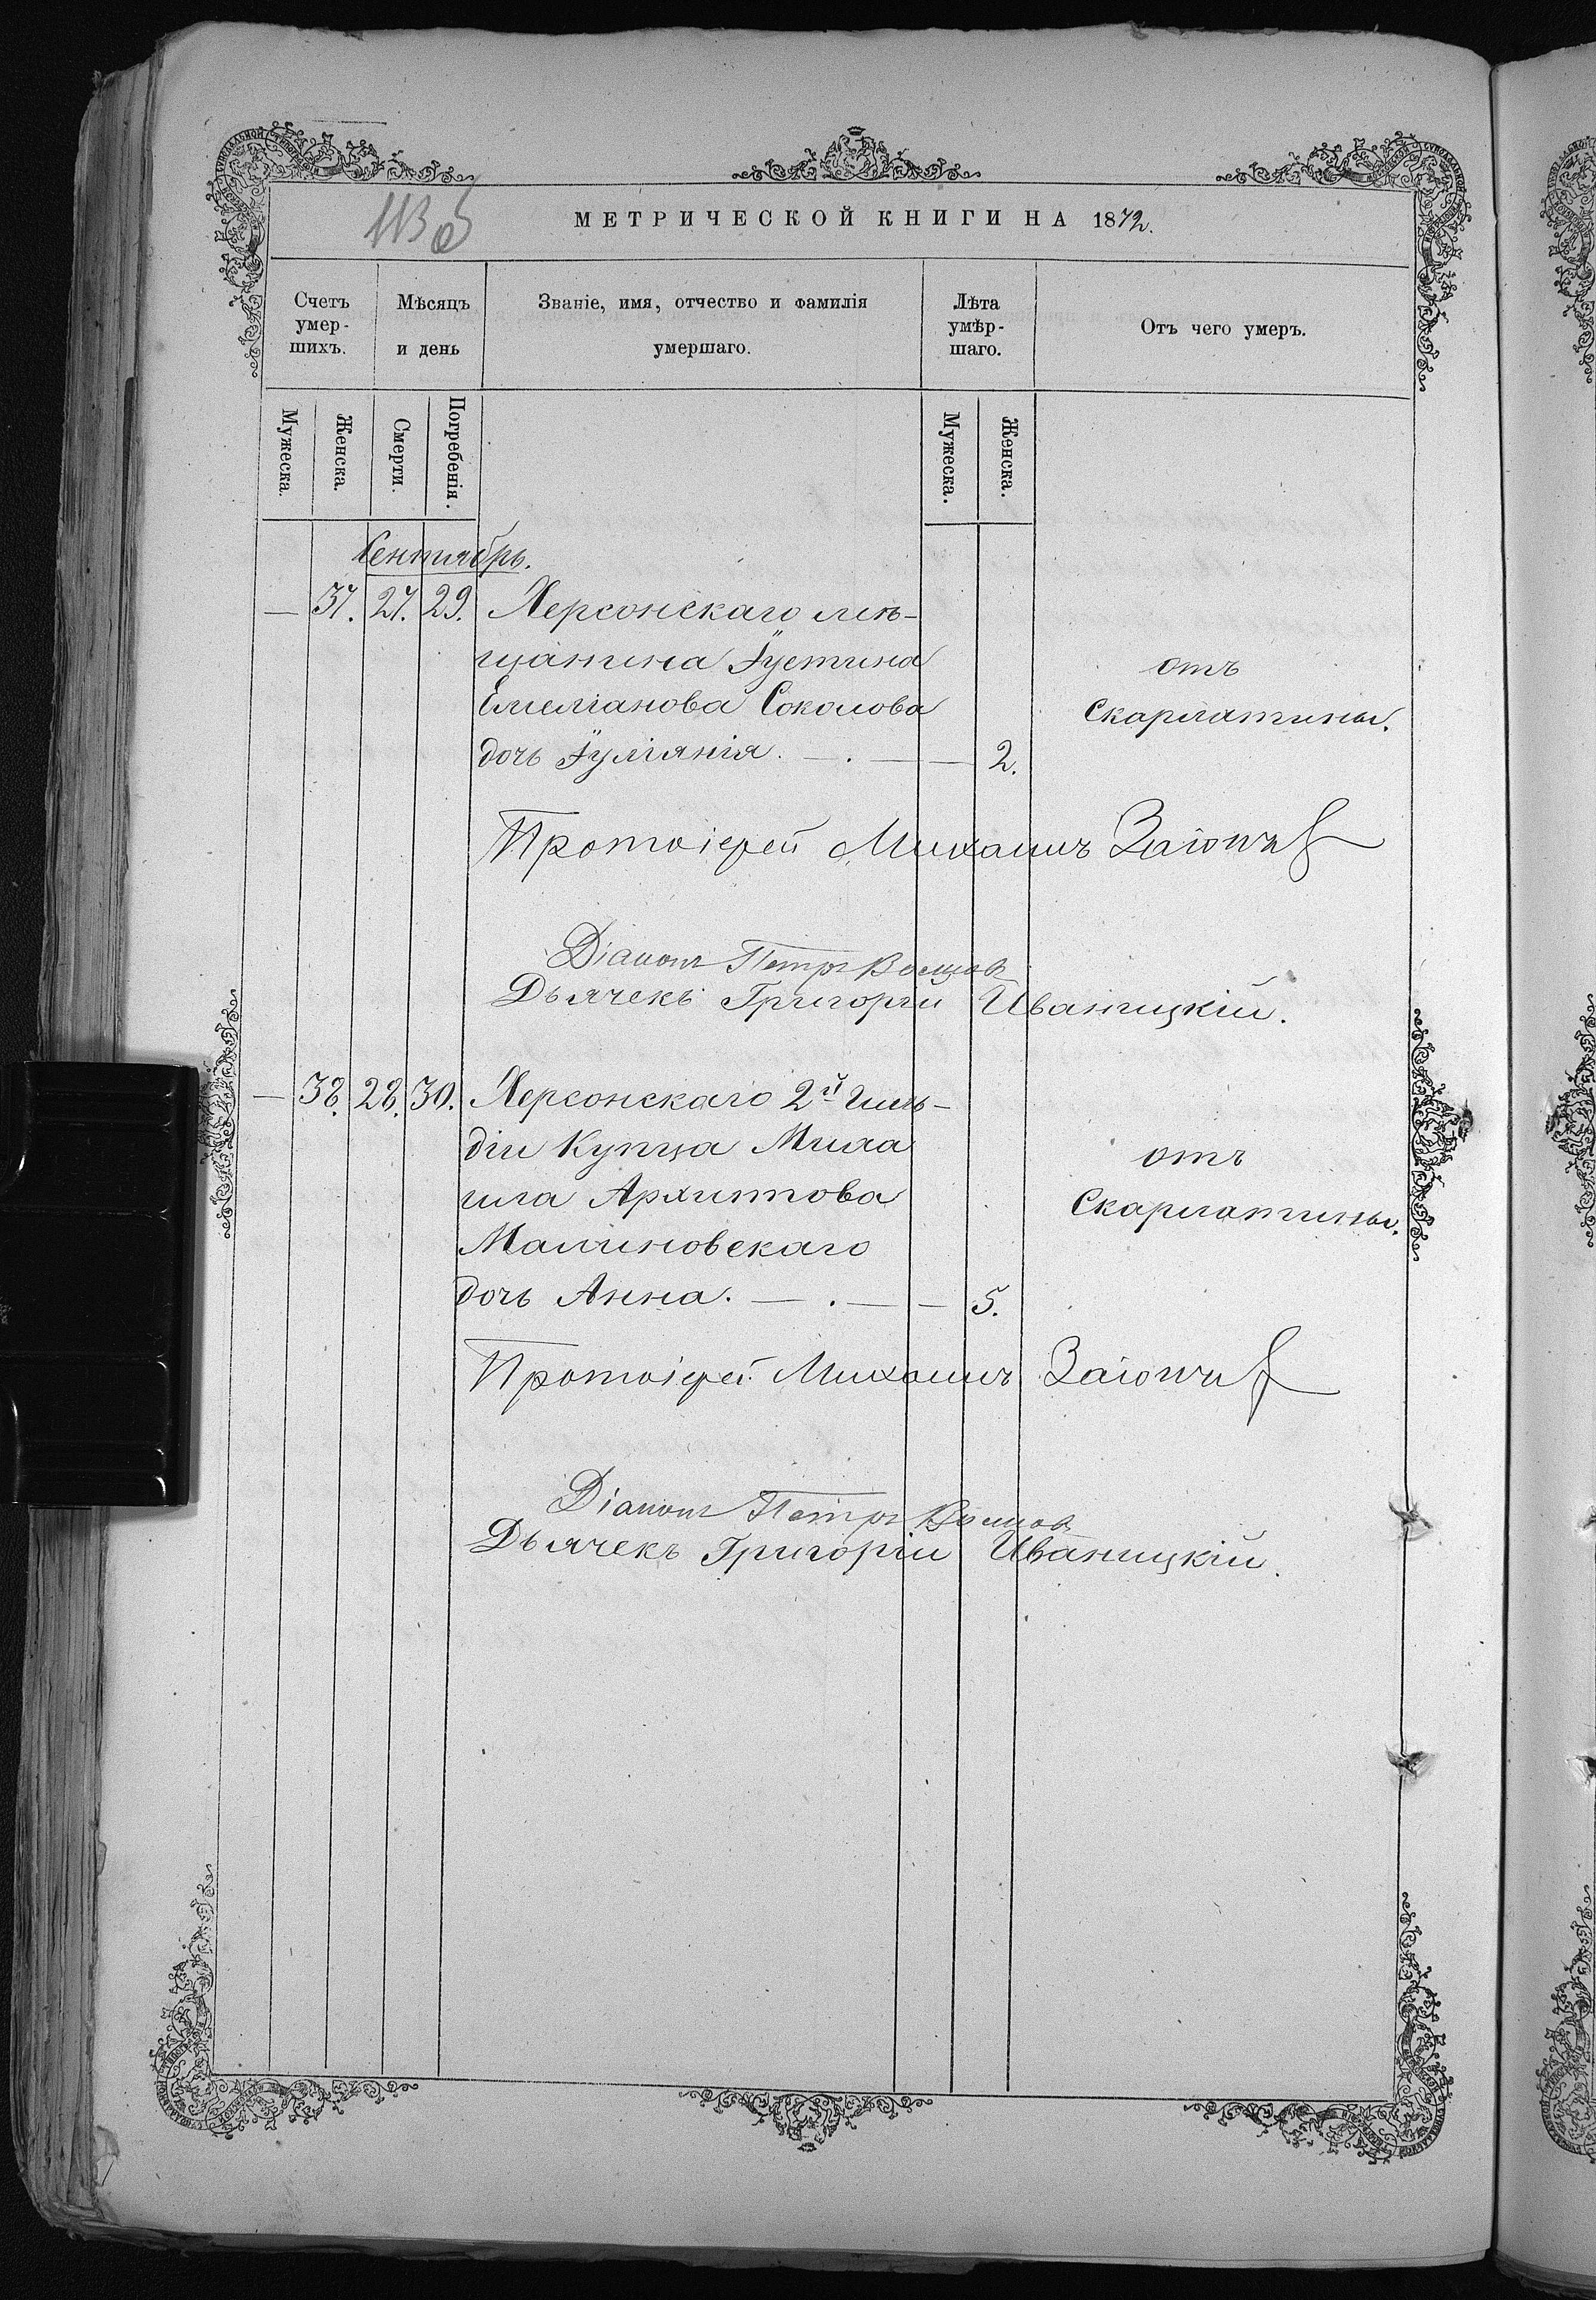 МЕТРИЧЕСКОЙ КНИГИ НА 1872.
Счетъ умер-шихъ.
Мѣсяцъ и день
Званіе, имя, отчество и фамилія умершаго.
Лѣта умѣр-шаго.
Отъ чего умеръ.
Мужеска.
Женска.
Смерти.
Погребенія.
Мужеска.
Женска.
Сентябрь.
— 37. 27. 29. Херсонскаго мѣ-
щанина Іустина
Емеліанова Соколова
дочь Іуліанія. — . — — 2.
отъ
Скарлатины.
Протоіерей Михаилъ
Діаконъ Петръ
Дьячекъ Григорій Иваницкій.
— 38. 28. 30. Херсонскаго 2й Гиль-
діи Купца Миха
ила Архипова
Малиновскаго
дочь Анна. — . — — 5.
отъ
Скарлатины.
Протоіерей Михаилъ
Діаконъ Петръ
Дьячекъ Григорій Иваницкій.